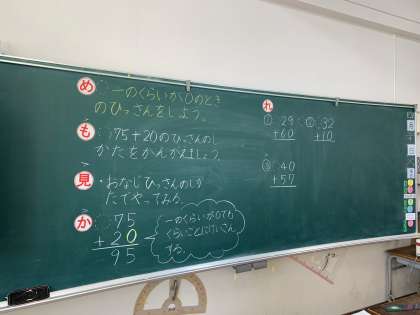 め 一のくらいが0のとき
のひっさんをしよう。
も 75+20のひっさんのし
かたをかんがえましょう。
見 ・おなじひっさんのしか
たでやってみる。
か 75
+20
95
一のくらいが0でも
くらいごとにけいさん
する。
れ
① 29
+60
② 32
+10
③ 40
+57